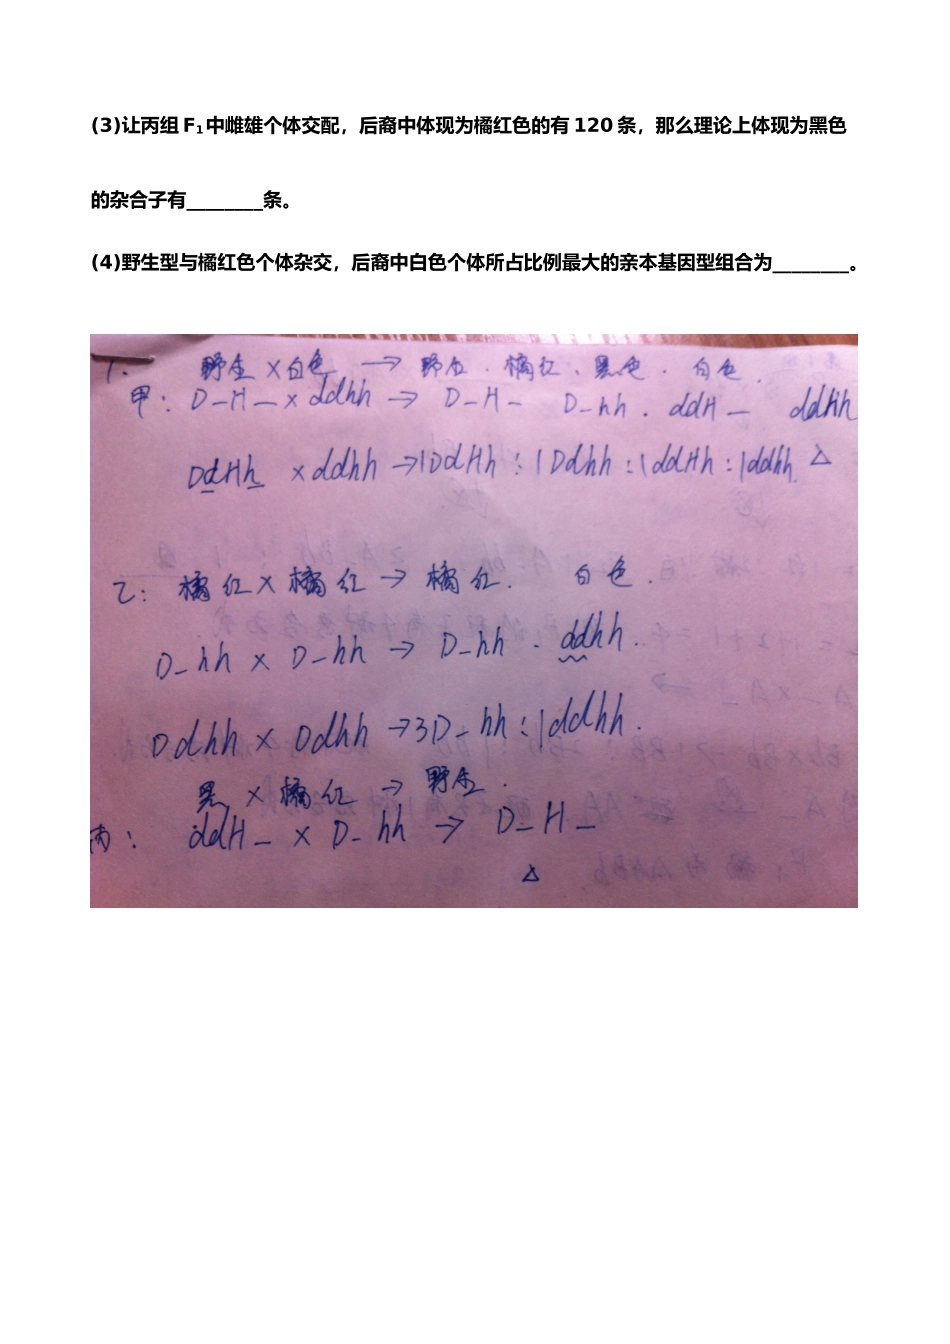 (3)让丙组F₁中雌雄个体交配，后裔中体现为橘红色的有120条，那么理论上体现为黑色
的杂合子有________条。
(4)野生型与橘红色个体杂交，后裔中白色个体所占比例最大的亲本基因型组合为________。
1. 野生×白色 → 野生．橘红、黑色．白色．
甲：D_H_×ddhh → D_H_ D_hh．ddH_ ddhh
DdHh ×ddhh →1DdHh：1Ddhh：1ddHh：1ddhh. △
乙：橘红×橘红→橘红． 白色．
D_hh × D_hh → D_hh．ddhh．
Ddhh × Ddhh →3D_hh：1ddhh．
黑×橘红→野生．
丙：ddH_ × D_hh → D_H_
△